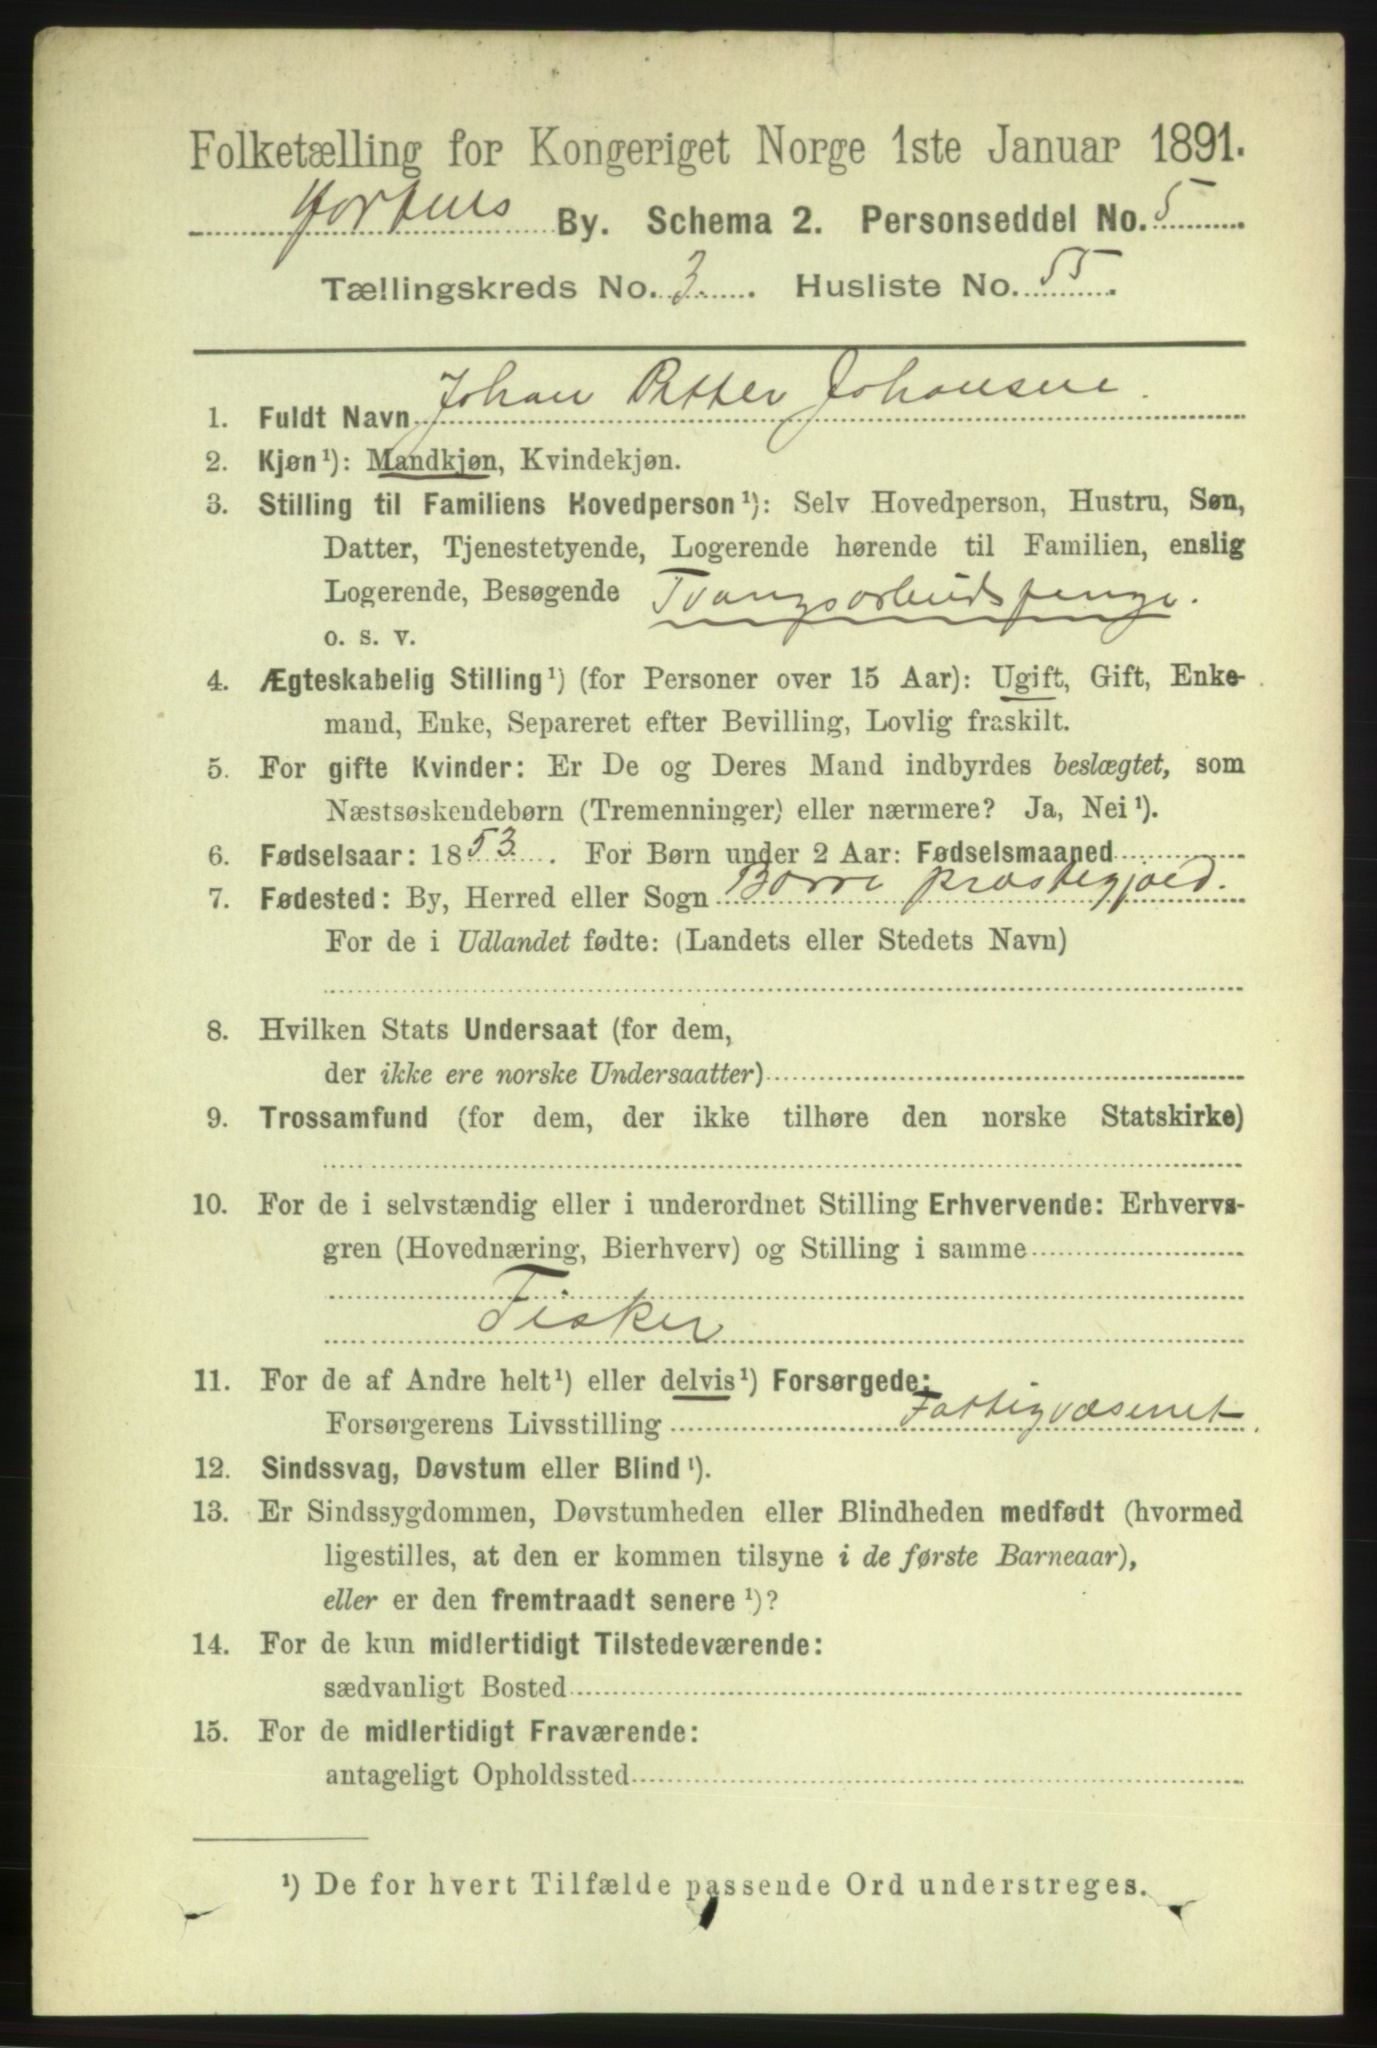 Folketælling for Kongeriget Norge 1ste Januar 1891.
Hortens By. Schema 2. Personseddel No. 5
Tællingskreds No. 3. Husliste No. 55
1. Fuldt Navn Johan Petter Johansen.
2. Kjøn¹): Mandkjøn, Kvindekjøn.
3. Stilling til Familiens Hovedperson¹): Selv Hovedperson, Hustru, Søn,
Datter, Tjenestetyende, Logerende hørende til Familien, enslig
Logerende, Besøgende Tvangsarbeidsfange.
o. s. v.
4. Ægteskabelig Stilling¹) (for Personer over 15 Aar): Ugift, Gift, Enke-
mand, Enke, Separeret efter Bevilling, Lovlig fraskilt.
5. For gifte Kvinder: Er De og Deres Mand indbyrdes beslægtet, som
Næstsøskendebørn (Tremenninger) eller nærmere? Ja, Nei¹).
6. Fødselsaar: 1853. For Børn under 2 Aar: Fødselsmaaned
7. Fødested: By, Herred eller Sogn Borre præstegjæld.
For de i Udlandet fødte: (Landets eller Stedets Navn)
8. Hvilken Stats Undersaat (for dem,
der ikke ere norske Undersaatter)
9. Trossamfund (for dem, der ikke tilhøre den norske Statskirke)
10. For de i selvstændig eller i underordnet Stilling Erhvervende: Erhvervs-
gren (Hovednæring, Bierhverv) og Stilling i samme
Fisker
11. For de af Andre helt¹) eller delvis¹) Forsørgede:
Forsørgerens Livsstilling Fattigvæsenet.
12. Sindssvag, Døvstum eller Blind¹).
13. Er Sindssygdommen, Døvstumheden eller Blindheden medfødt (hvormed
ligestilles, at den er kommen tilsyne i de første Barneaar),
eller er den fremtraadt senere¹)?
14. For de kun midlertidigt Tilstedeværende:
sædvanligt Bosted
15. For de midlertidigt Fraværende:
antageligt Opholdssted
¹) De for hvert Tilfælde passende Ord understreges.